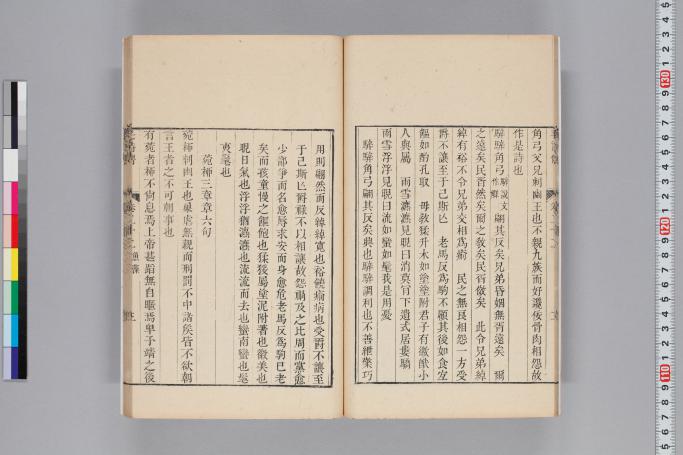 角弓父兄刺幽王也不親九族而好讒佞骨肉相怨故
作是詩也
騂騂角弓翩其反矣兄弟昏姻無胥遠矣 爾
之遠矣民胥然矣爾之教矣民胥傚矣 此令兄弟綽
綽有裕不令兄弟交相為瘉 民之無良相怨一方受
爵不讓至于己斯亡 老馬反為駒不顧其後如食宜
饇如酌孔取 毋教猱升木如塗塗附君子有徽猷小
人與屬 雨雪瀌瀌見晛曰消莫肯下遺式居婁驕
雨雪浮浮見晛曰流如蠻如髦我是用憂
騂騂角弓翩其反矣興也騂騂調利也不善紲檠巧
用則翩然而反綽綽寬也裕饒瘉病也受爵不讓至
于己斯亡爵祿不以相讓故怨禍及之比周而黨愈
少鄙爭而名愈辱求安而身愈危老馬反為駒已老
矣而孩童慢之饇飽也猱猨屬塗泥附著也徽美也
晛日氣也浮浮猶瀌瀌也流流而去也蠻南蠻也髦
夷髦也
菀柳三章章六句
菀柳刺幽王也暴虐無親而刑罰不中諸矦皆不欲朝
言王者之不可朝事也
有菀者柳不尙息焉上帝甚蹈無自暱焉俾予靖之後